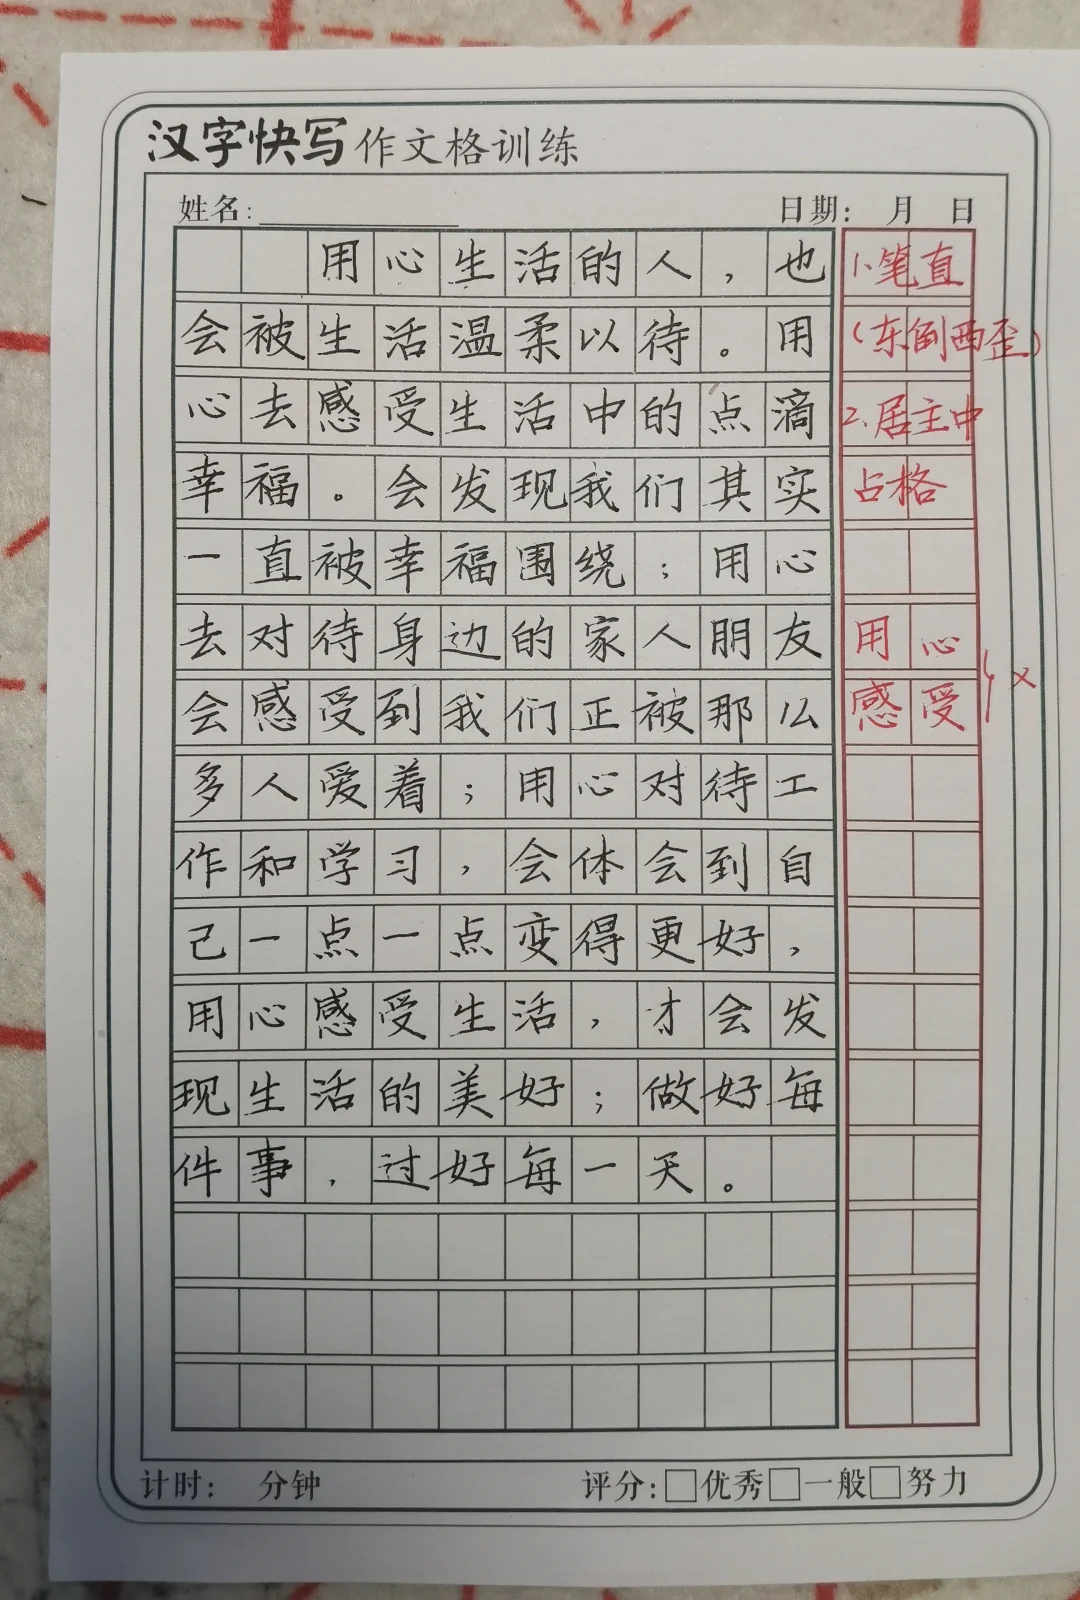 汉字快写作文格训练
姓名: 日期: 月 日
用心生活的人，也
会被生活温柔以待。用
心去感受生活中的点滴
幸福。会发现我们其实
一直被幸福围绕；用心
去对待身边的家人朋友
会感受到我们正被那么
多人爱着；用心对待工
作和学习，会体会到自
己一点一点变得更好，
用心感受生活，才会发
现生活的美好；做好每
件事，过好每一天。
1、笔直
(东倒西歪)
2、居主中
占格
用心
感受
×
计时: 分钟 评分:□优秀□一般□努力